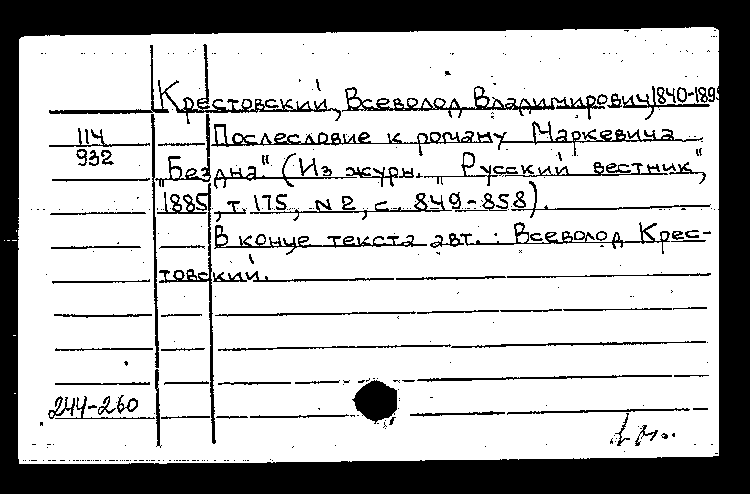 Крестовский, Всеволод Владимирович, 1840-1895
114
932
Послесловие к роману Маркевича
"Бездна" (Из журн. "Русский вестник",
1885, т. 175, N 2, с. 849-858).
В конце текста авт.: Всеволод Крес-
товский.
244-260